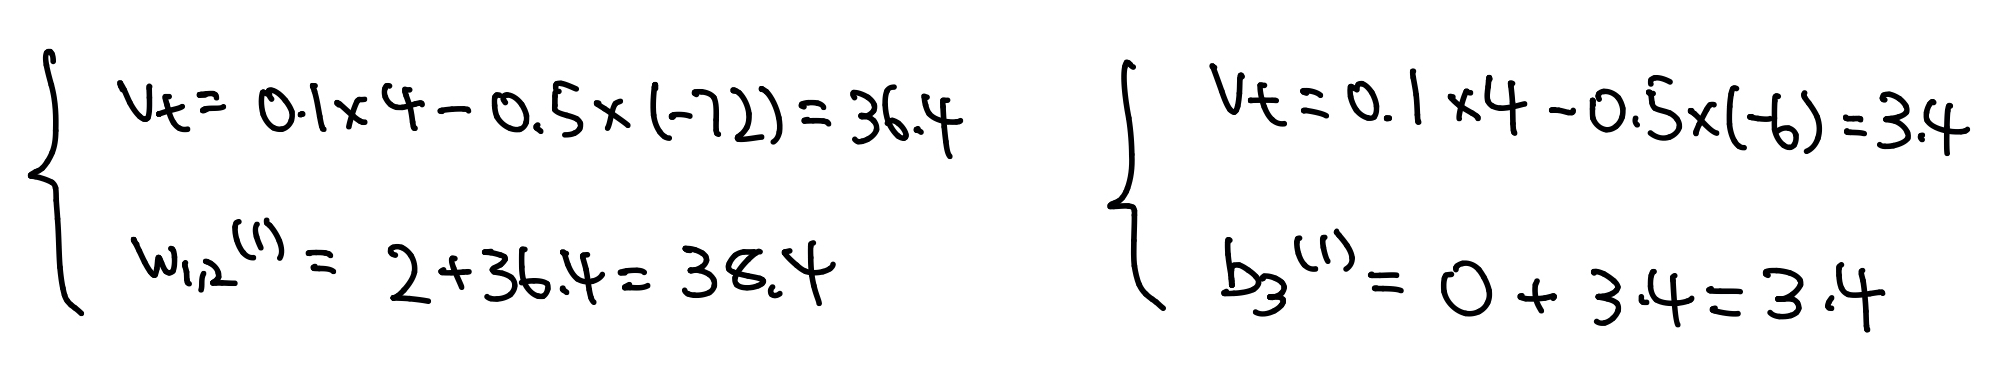 Vt = 0.1×4 - 0.5×(-72) = 36.4
w₁,₂⁽¹⁾ = 2+36.4 = 38.4
Vt = 0.1×4 - 0.5×(-6) = 3.4
b₃⁽¹⁾ = 0 + 3.4 = 3.4